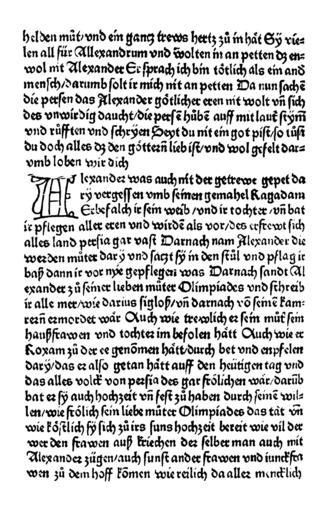 helden můt/vnd ein gancz trews hertz zů in hat Sy vie-
len all für Allexandrum vnd wolten in an petten dz en-
wol nit Alexander Er sprach ich bin tötlich als ein and
mensch/darumb solt ir mich nit an petten Da nun sachẽ
die persen das Alexander götlicher eren nit wolt vñ sich
des vnwirdig daucht/die persẽ hůbẽ auff mit lautt stym̃
vnd rüfften vnd schryẽn Seyt du nit ein got pist/so tůst
du doch alles dz den göttern̄ lieb ist/vnd wol gefelt dar-
vmb loben wir dich
Alexander was auch nit der getrewe gepet da
ry vergessen vmb seinen gemahel Ragadam
Er befalch ir sein weib/vnd ir tochter/vñ bat
ir pflegen aller eren vnd wirdẽ als vor/des erfrewt sich
alles land persia gar vast Darnach nam Alexander die
werden můter dary vnd saczt sy in den stůl vnd pflag ir
baß dann ir vor nye gepflegen was Darnach sandt Al
exander zů seiner lieben můter Olimpiades vnd schreib
ir alle mer/wie darius sigloß/vñ darnach võ seinẽ kam-
rern̄ ermordet war Auch wie trewlich er sein můt sein
haußfrawen vnd tochter im befolen hätt Auch wie er
Roxam zů der ee genõmen hätt/durch bet vnd enpfelen
dary/das er also getan hätt auff den heütigen tag vnd
das alles volck von persia des gar frölichen wär/darüb
bat er sy auch hochzeit vñ fest zů haben durch seinẽ wil-
len/wie frölich sein liebe můter Olimpiades das tät vñ
wie köstlich sy sich zů irs suns hochzeit bereit wie vil der
werden frawen auß kriechen der selber man auch mit
Alexander zügen/auch sunst ander frawen vnd iunckfra
wen zů dem hoff kömen wie reilich da aller mencklich